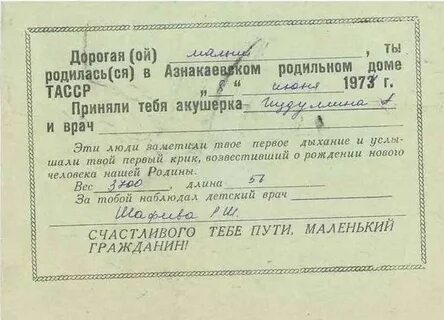 Дорогая (ой) малыш, ты
родилась(ся) в Азнакаевском родильном доме
ТАССР „8“ июня 197 г.
Приняли тебя акушерка
и врач
Эти люди заметили твое первое дыхание и услы-
шали твой первый крик, возвестивший о рождении нового
человека нашей Родины.
Вес 3700, длина 51
За тобой наблюдал детский врач
Шафиева Р.Ш.
СЧАСТЛИВОГО ТЕБЕ ПУТИ, МАЛЕНЬКИЙ
ГРАЖДАНИН!